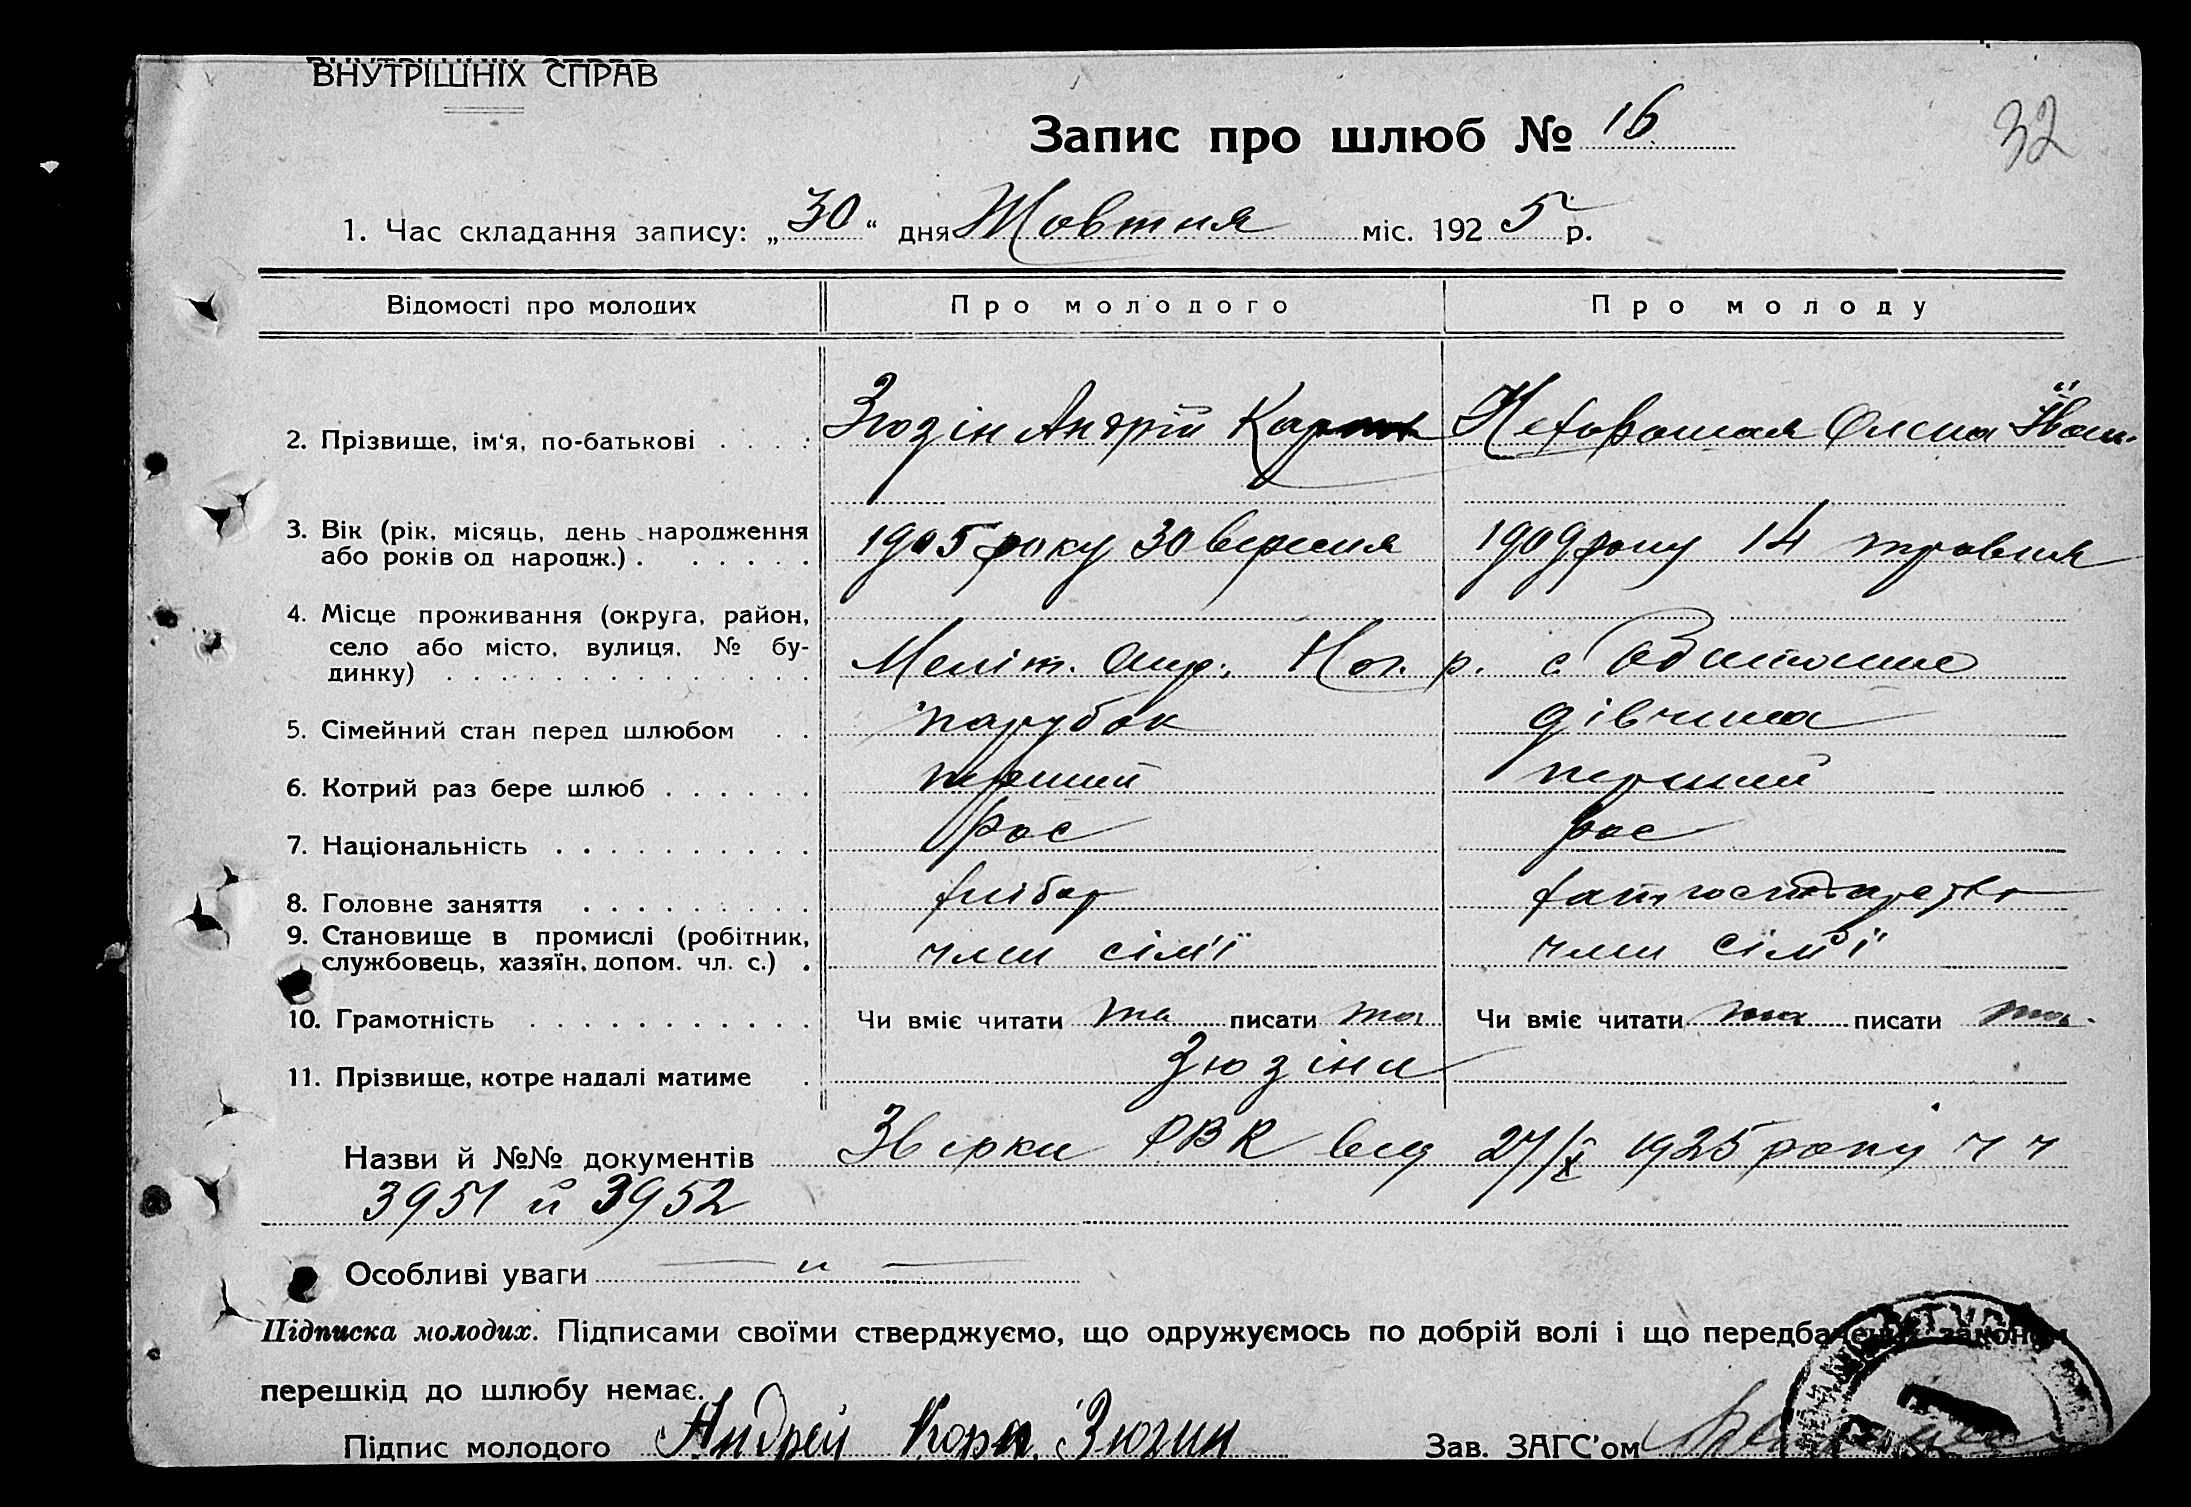 ВНУТРІШНІХ СПРАВ
Запис про шлюб № 16.
32
1. Час складання запису: „30“ дня Жовтня міс. 1925 р.
Відомості про молодих Про молодого Про молоду
2. Прізвище, ім'я, по-батькові Зюзін Андрій Олена Іван.
3. Вік (рік, місяць, день народження
або років од народж.) 1905 року 30 вересня 1909 року 14 травня
4. Місце проживання (округа, район,
село або місто, вулиця, № бу-
динку) Меліт. Окр., Ног. р. с.
5. Сімейний стан перед шлюбом парубок дівчина
6. Котрий раз бере шлюб перший перший
7. Національність рос рос
8. Головне заняття хлібор хатн господарство
9. Становище в промислі (робітник,
службовець, хазяїн, допом. чл. с.) член сім'ї член сім'ї
10. Грамотність Чи вміє читати та писати та Чи вміє читати та писати та.
11. Прізвище, котре надалі матиме Зюзіни
Назви й №№ документів РВК від 27/X 1925 року ч ч
3951 й 3952
Особливі уваги — „ —
Підписка молодих. Підписами своїми стверджуємо, що одружуємось по добрій волі і що передбачених законом
перешкід до шлюбу немає.
Підпис молодого Андрей Корн. Зюзин Зав. ЗАГС'ом